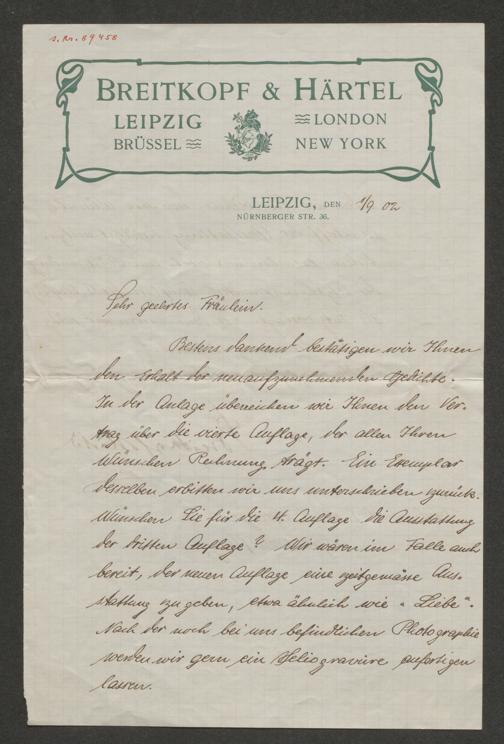 BREITKOPF & HÄRTEL
LEIPZIG LONDON
BRÜSSEL NEW YORK
LEIPZIG, DEN 1/9 02
NÜRNBERGER STR. 36.
Sehr geehrtes Fräulein.
Bestens dankend bestätigen wir Ihnen
den Erhalt der neuaufzunehmenden Gedichte.
In der Anlage überreichen wir Ihnen den Ver-
trag über die vierte Auflage, der allen Ihren
Wünschen Rechnung trägt. Ein Exemplar
desselben erbitten wir uns unterschrieben zurück.
Wünschen Sie für die 4. Auflage die Ausstattung
der dritten Auflage? Wir wären im Falle auch
bereit, der neuen Auflage eine zeitgemässe Aus-
stattung zu geben, etwa ähnlich wie „Liebe“.
Nach der noch bei uns befindlichen Photographie
werden wir gern ein Heliogravüre anfertigen
lassen.